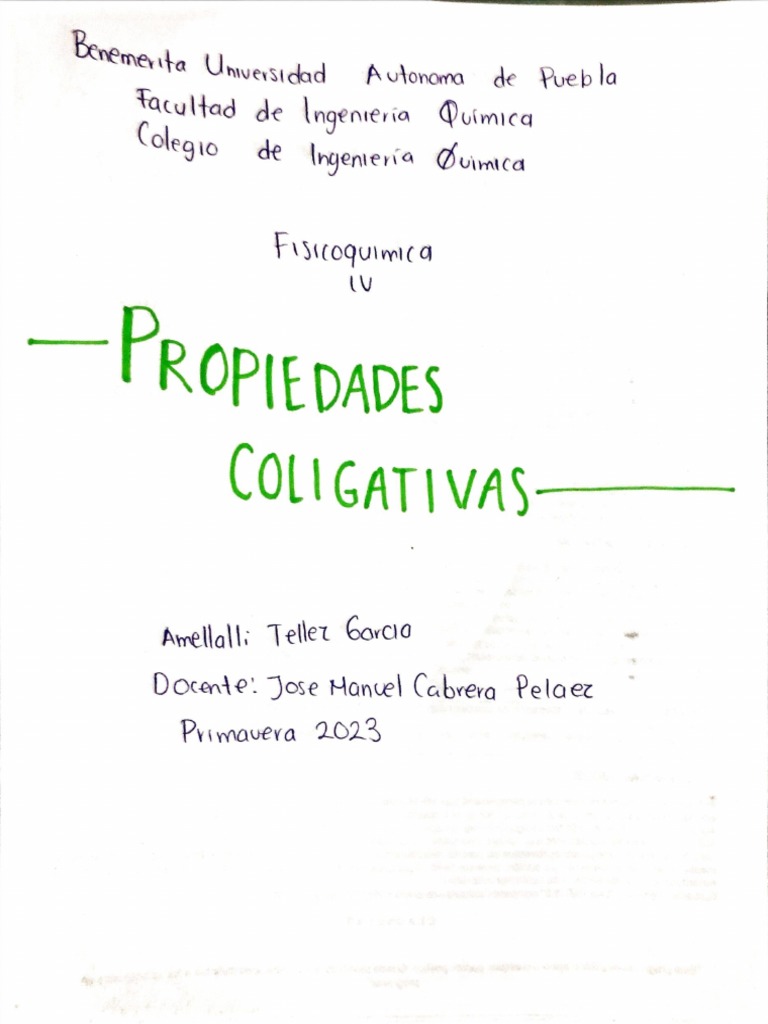 Benemerita Universidad Autonoma de Puebla
Facultad de Ingeniería Química
Colegio de Ingeniería Química
Fisicoquimica
IV
PROPIEDADES
COLIGATIVAS
Amellalli Tellez Garcia
Docente: Jose Manuel Cabrera Pelaez
Primavera 2023